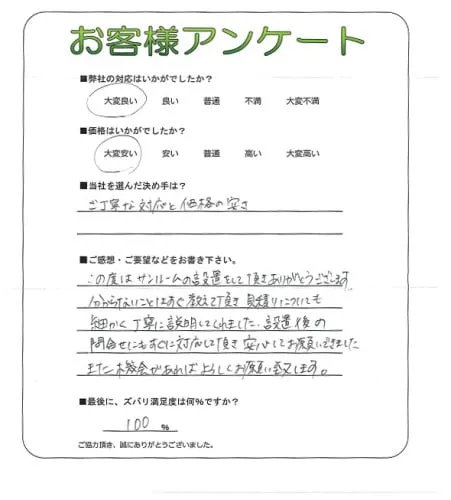 お客様アンケート
■弊社の対応はいかがでしたか?
大変良い 良い 普通 不満 大変不満
■価格はいかがでしたか?
大変安い 安い 普通 高い 大変高い
■当社を選んだ決め手は?
ご丁寧な対応と価格の安さ
■ご感想・ご要望などをお書き下さい。
この度はサンルームの設置をして頂きありがとうございます
分からないことはすぐ教えて頂き 見積りについても
細かく丁寧に説明してくれました。設置後の
問合せにもすぐに対応して頂き安心してお願いできました
また機会があればよろしくお願い致します。
■最後に、ズバリ満足度は何%ですか?
100 %
ご協力頂き、誠にありがとうございました。